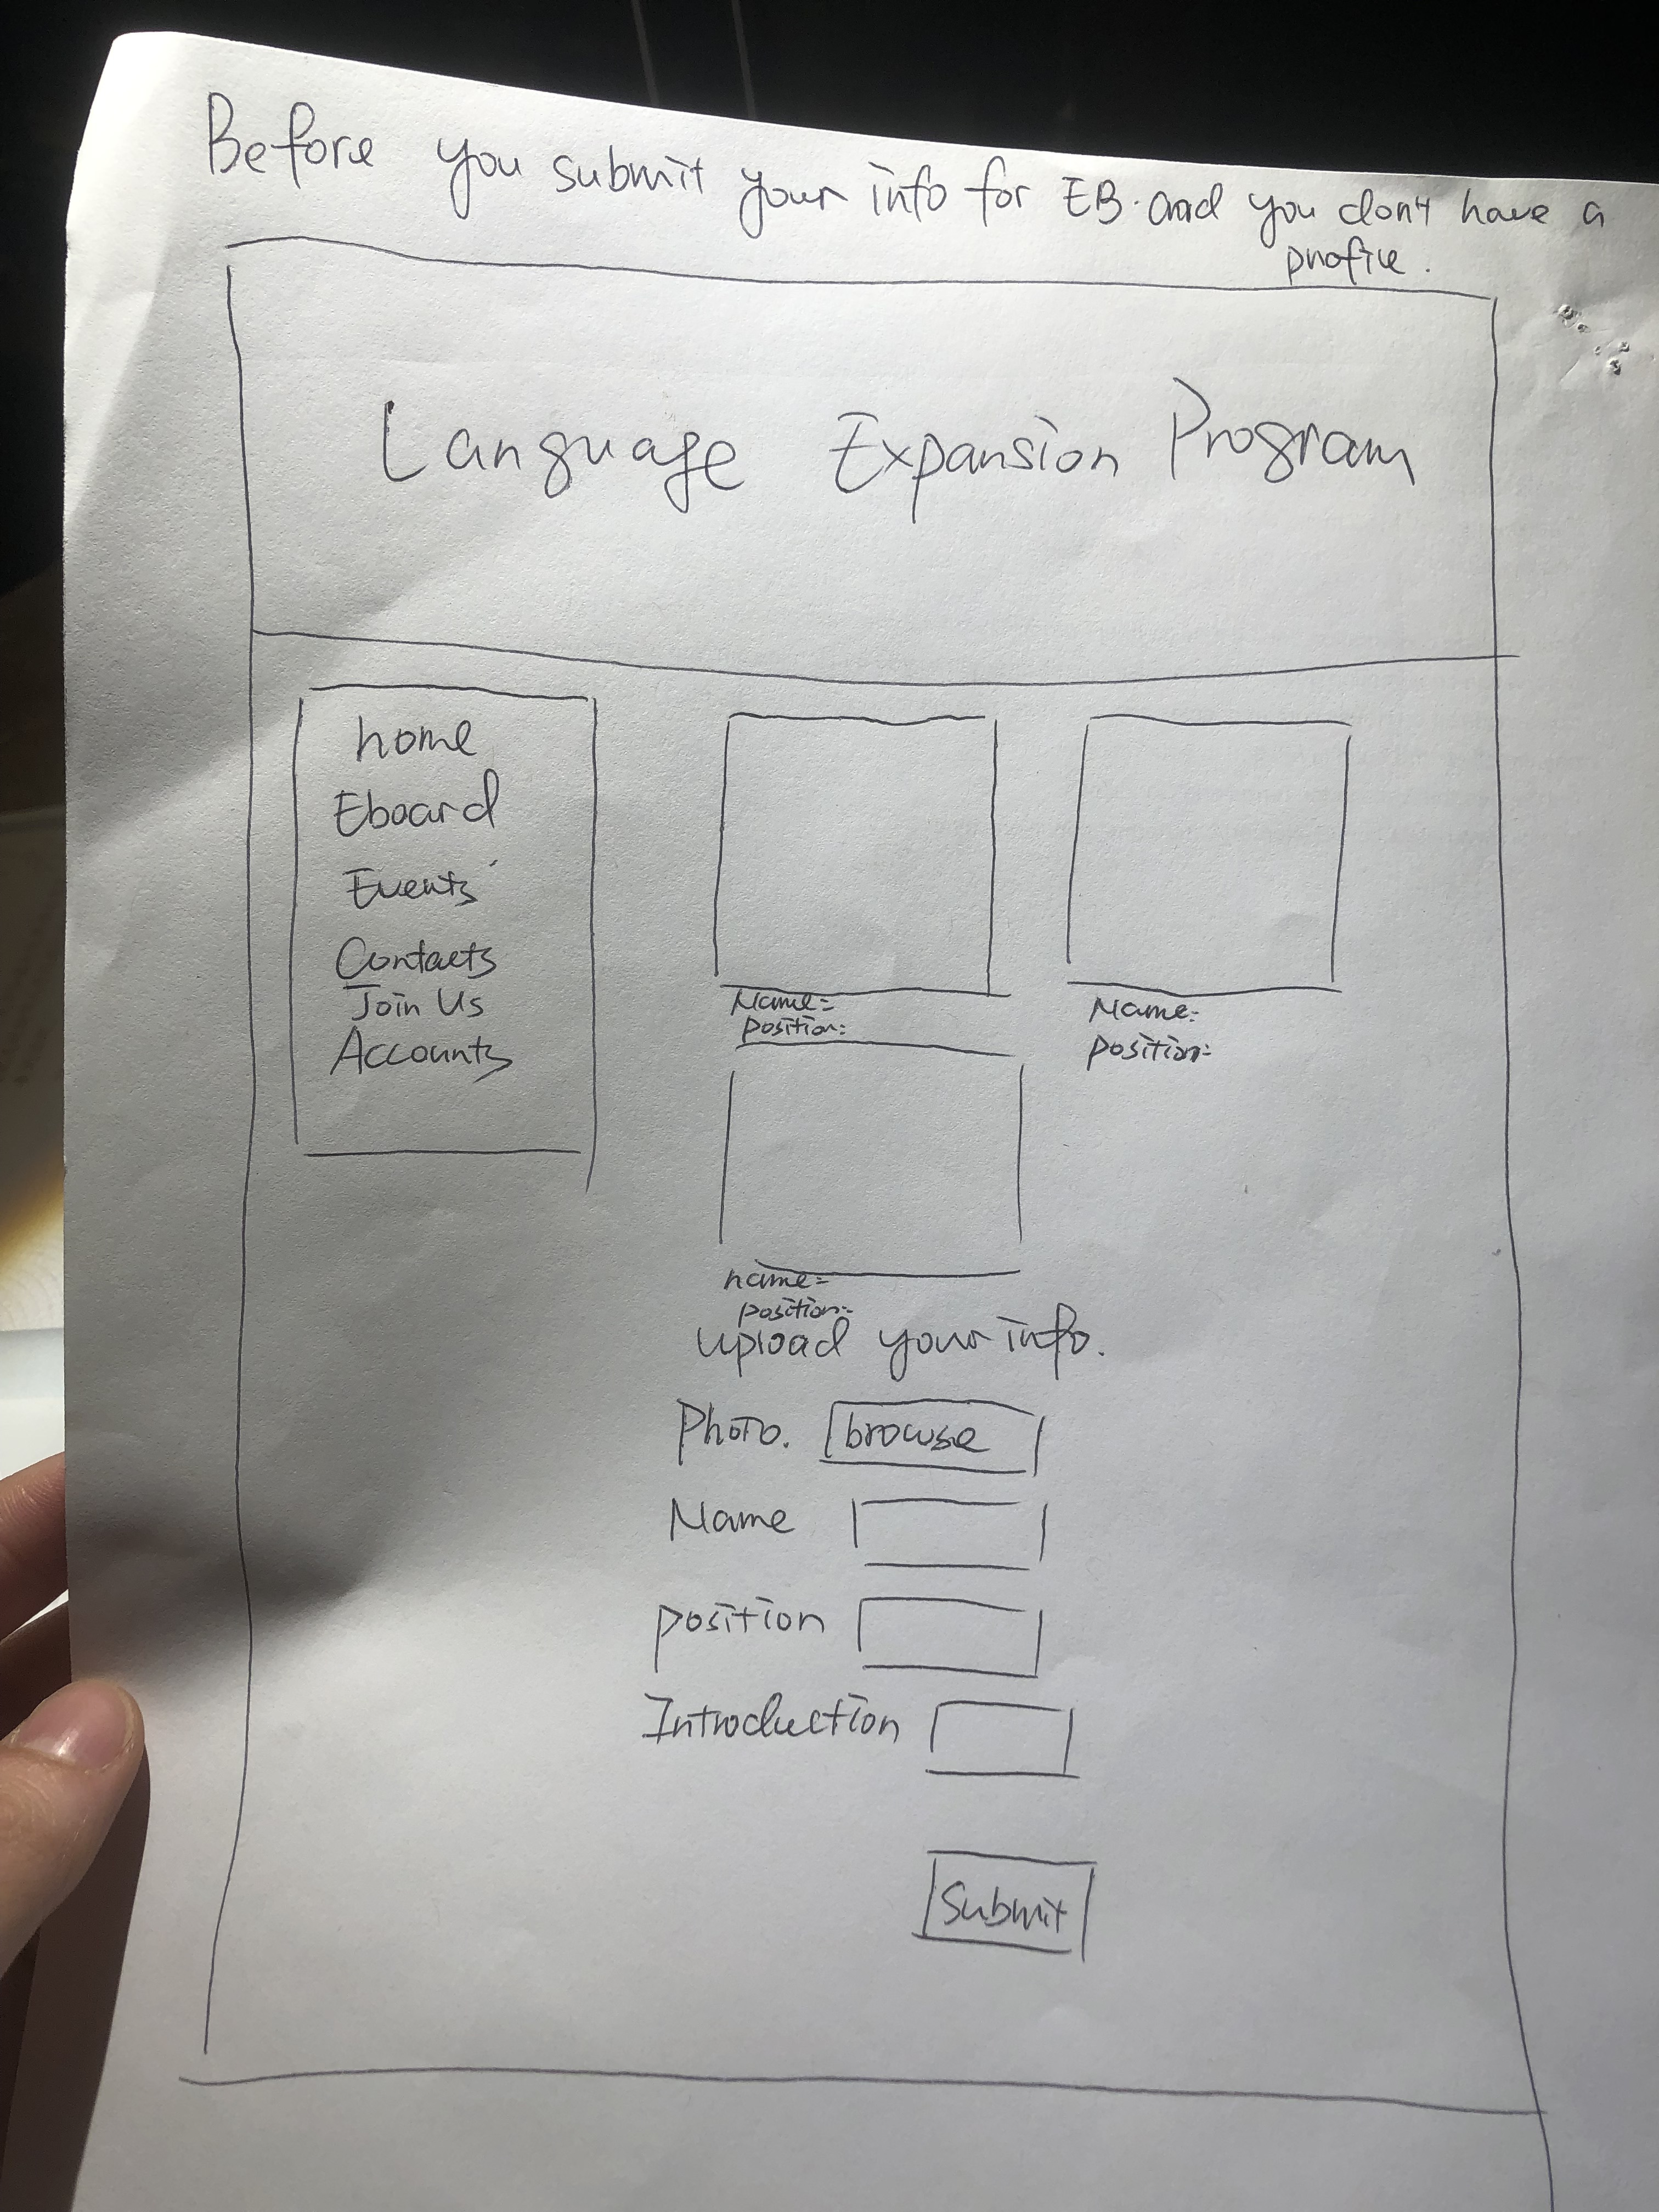 Before you submit your info for EB. and you don't have a
profile.
Language Expansion Program
home
Eboard
Events
Contacts
Join Us
Accounts
Name:
position:
Name:
position:
name:
position:
upload your info.
Photo. browse
Name
position
Introduction
Submit